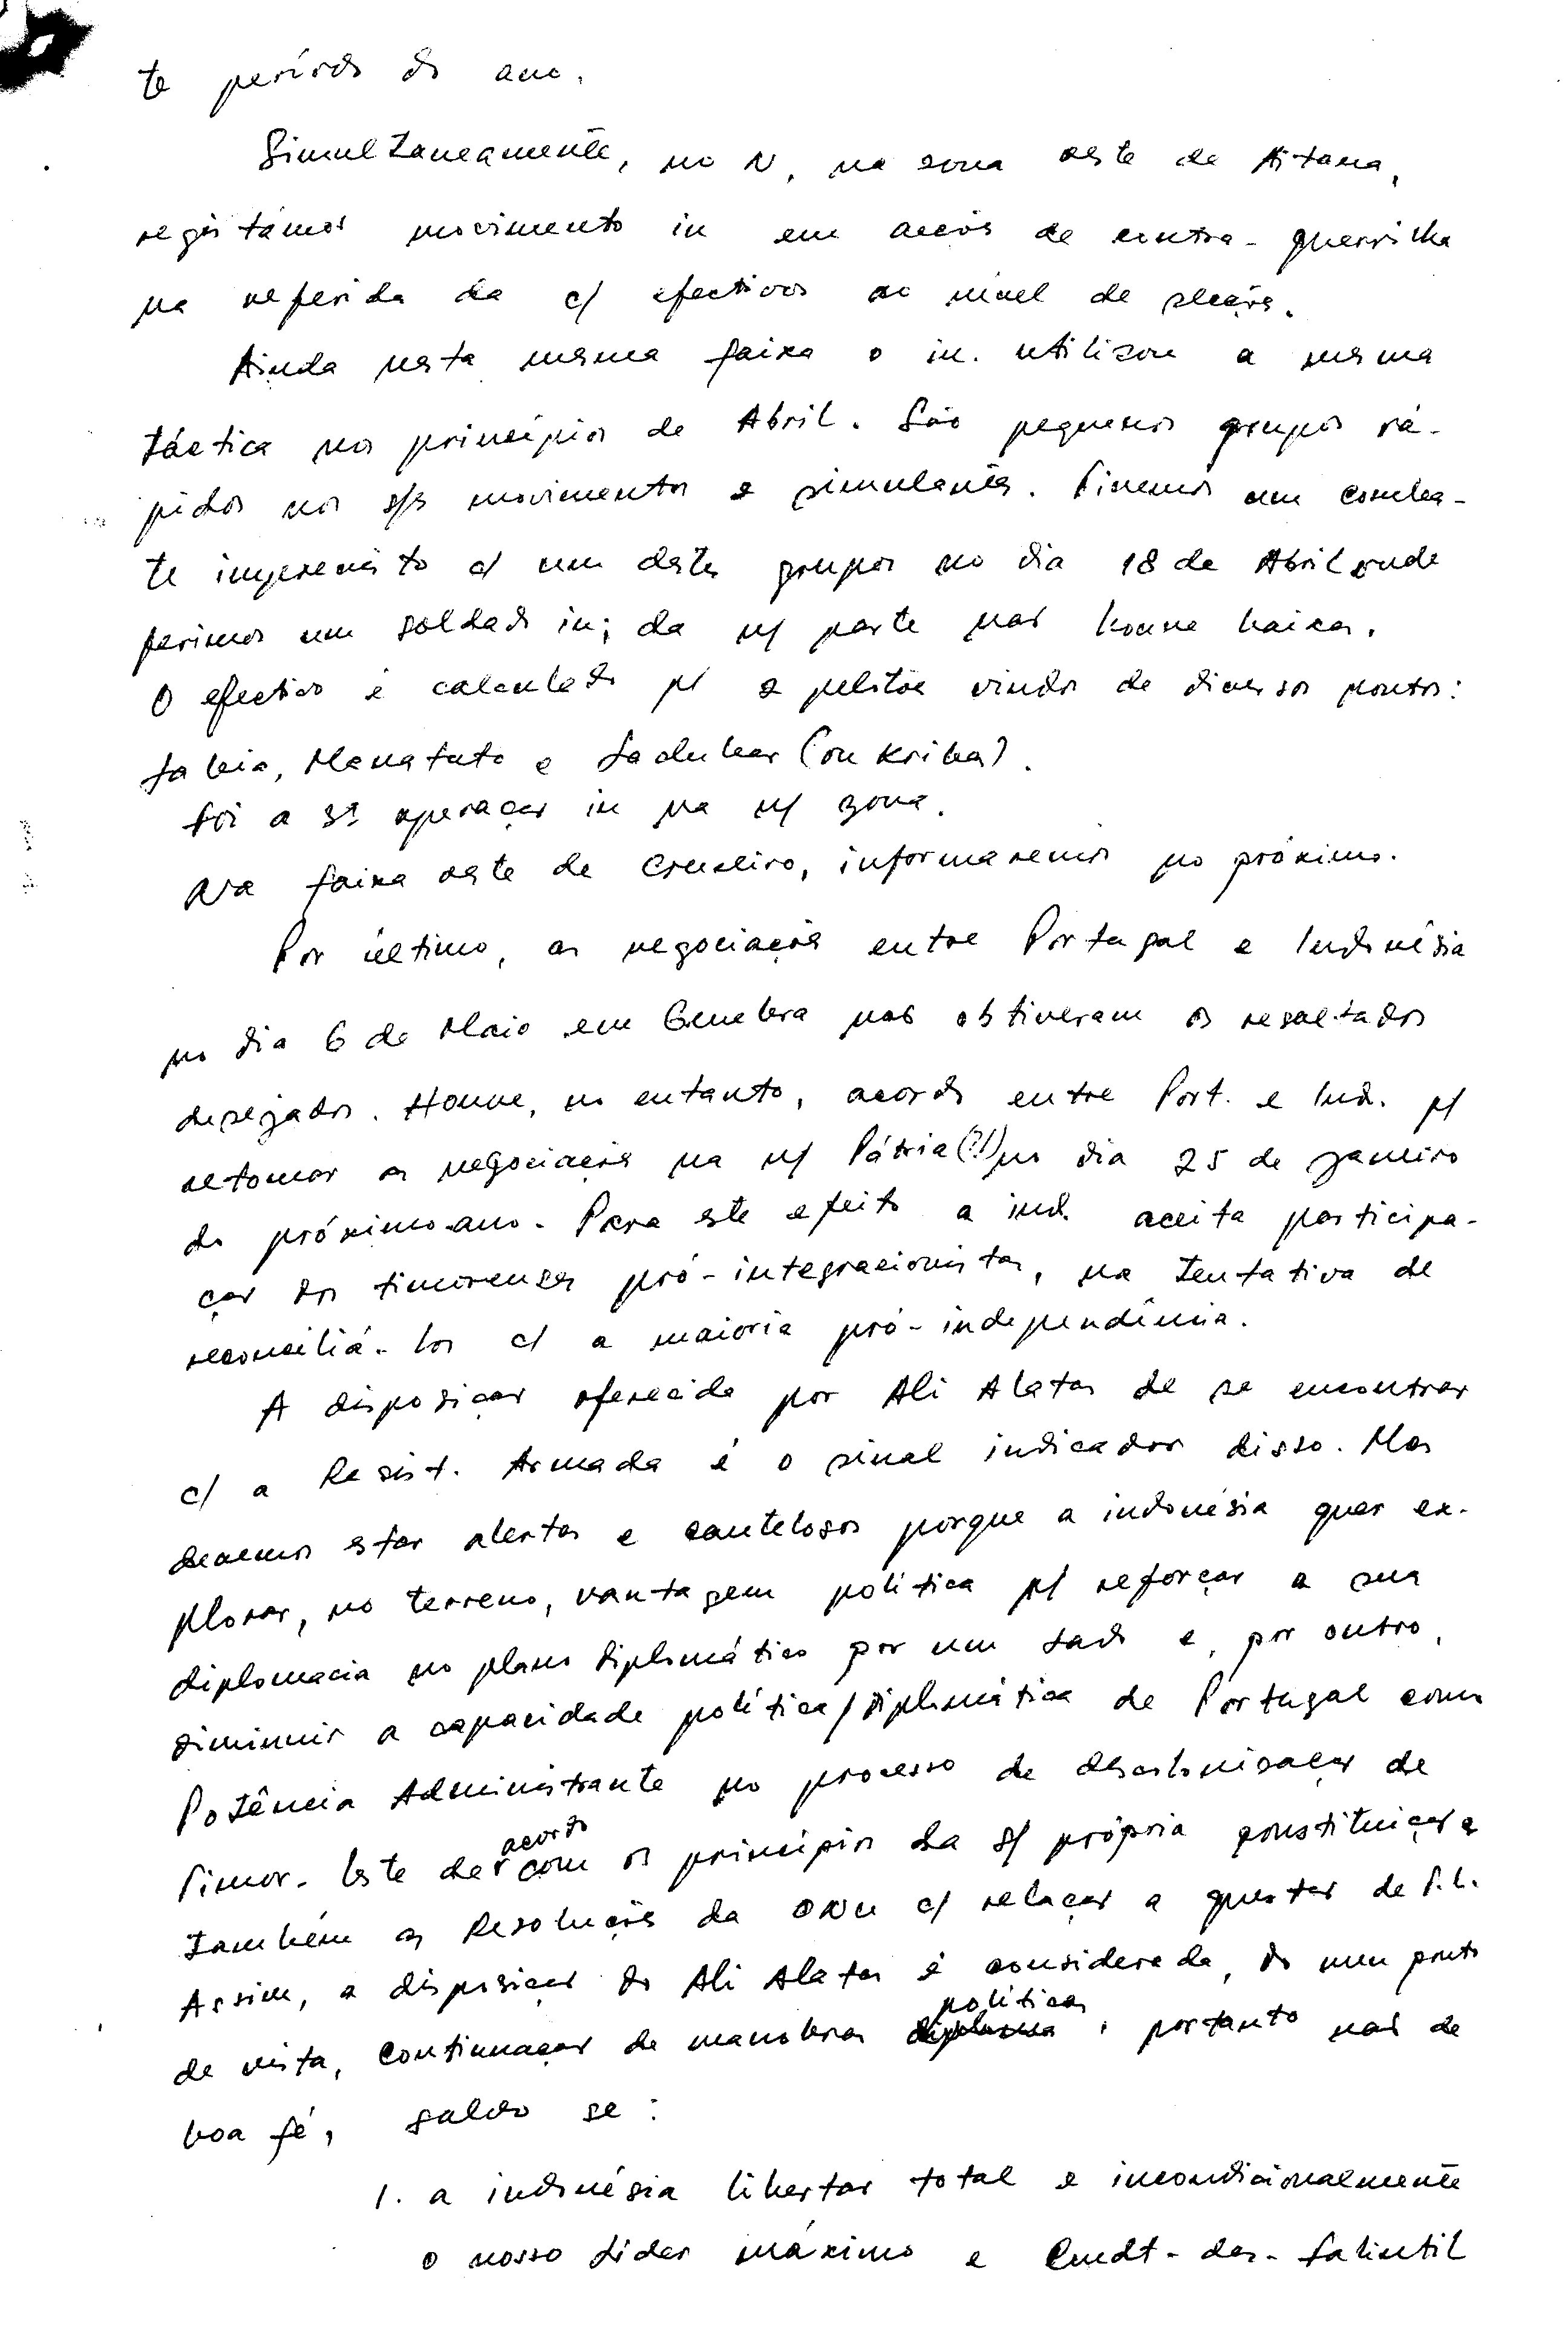 te período do ano.
Simultaneamente, no N, na zona oeste de Aitana,
registámos movimento in em acção de contra-guerrilha
na referida da c/ efectivos ao nível de secção.
Ainda nesta mesma faixa o in. utilizou a mesma
táctica nos princípios de Abril. São pequenos grupos rá-
pidos nos s/s movimentos e simulantes. Tivemos um comba-
te imprevisto c/ um destes grupos no dia 18 de Abril onde
ferimos um soldado in; da n/ parte não houve baixas.
O efectivo é calculado p/ 2 pelotões vindos de diversos pontos:
Laleia, Manatuto e Salubar (ou Kribas).
Foi a 3ª operação in na n/ zona.
Na faixa oeste de Cruzeiro, informaremos no próximo.
Por último, as negociações entre Portugal e Indonésia
no dia 6 de Maio em Genebra não obtiveram os resultados
desejados. Houve, no entanto, acordo entre Port. e Ind. p/
retomar as negociações na n/ Pátria (?!) no dia 25 de Janeiro
do próximo ano. Para este efeito a ind. aceita participa-
ção dos timorenses pró-integracionistas, na tentativa de
reconciliá-los c/ a maioria pró-independência.
A disposição oferecida por Ali Alatas de se encontrar
c/ a Resist. Armada é o sinal indicador disso. Mas
devemos estar alertas e cautelosos porque a indonésia quer ex-
plorar, no terreno, vantagem política p/ reforçar a sua
diplomacia no plano diplomático por um lado e, por outro,
diminuir a capacidade política/diplomática de Portugal como
Potência Administrante no processo de descolonização de
Timor-Leste de acordo com os princípios da s/ própria constituição e
também as Resoluções da ONU c/ relação a questão de T.L.
Assim, a disposição do Ali Alatas é considerada, do meu ponto
de vista, continuação de manobras políticas, portanto não de
boa fé, salvo se:
1. a indonésia libertar total e incondicionalmente
o nosso Líder máximo e Cmdt-das-Falintil